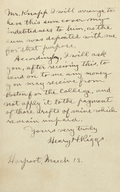 Mr. Knapp I will arrange to
have this sum cover my
indebtedness to him, as the
sum was deposited with me
for that purpose.
Accordingly, I will ask
you, after receiving this to
send on to me any money
you may receive from
for the College, and
not apply it to the payment
of that draft of mine which
remains unpaid.
Yours very truly
Henry H. Riggs
Harpoot, March 13.